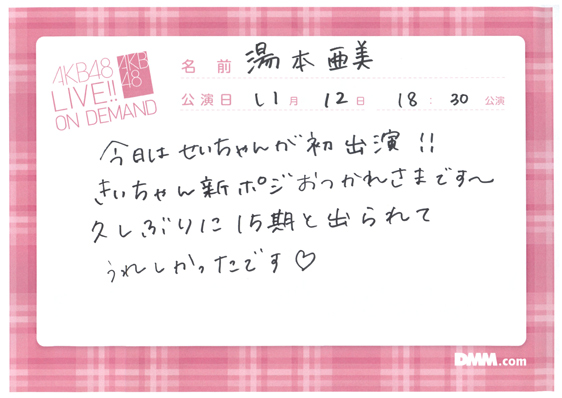 AKB48
LIVE!!
ON DEMAND
AKB
48
名前 湯本亜美
公演日 11月 12日 18:30公演
今日はせいちゃんが初出演!!
きいちゃん新ポジおつかれさまです〜
久しぶりに15期と出られて
うれしかったです♡
DMM.com